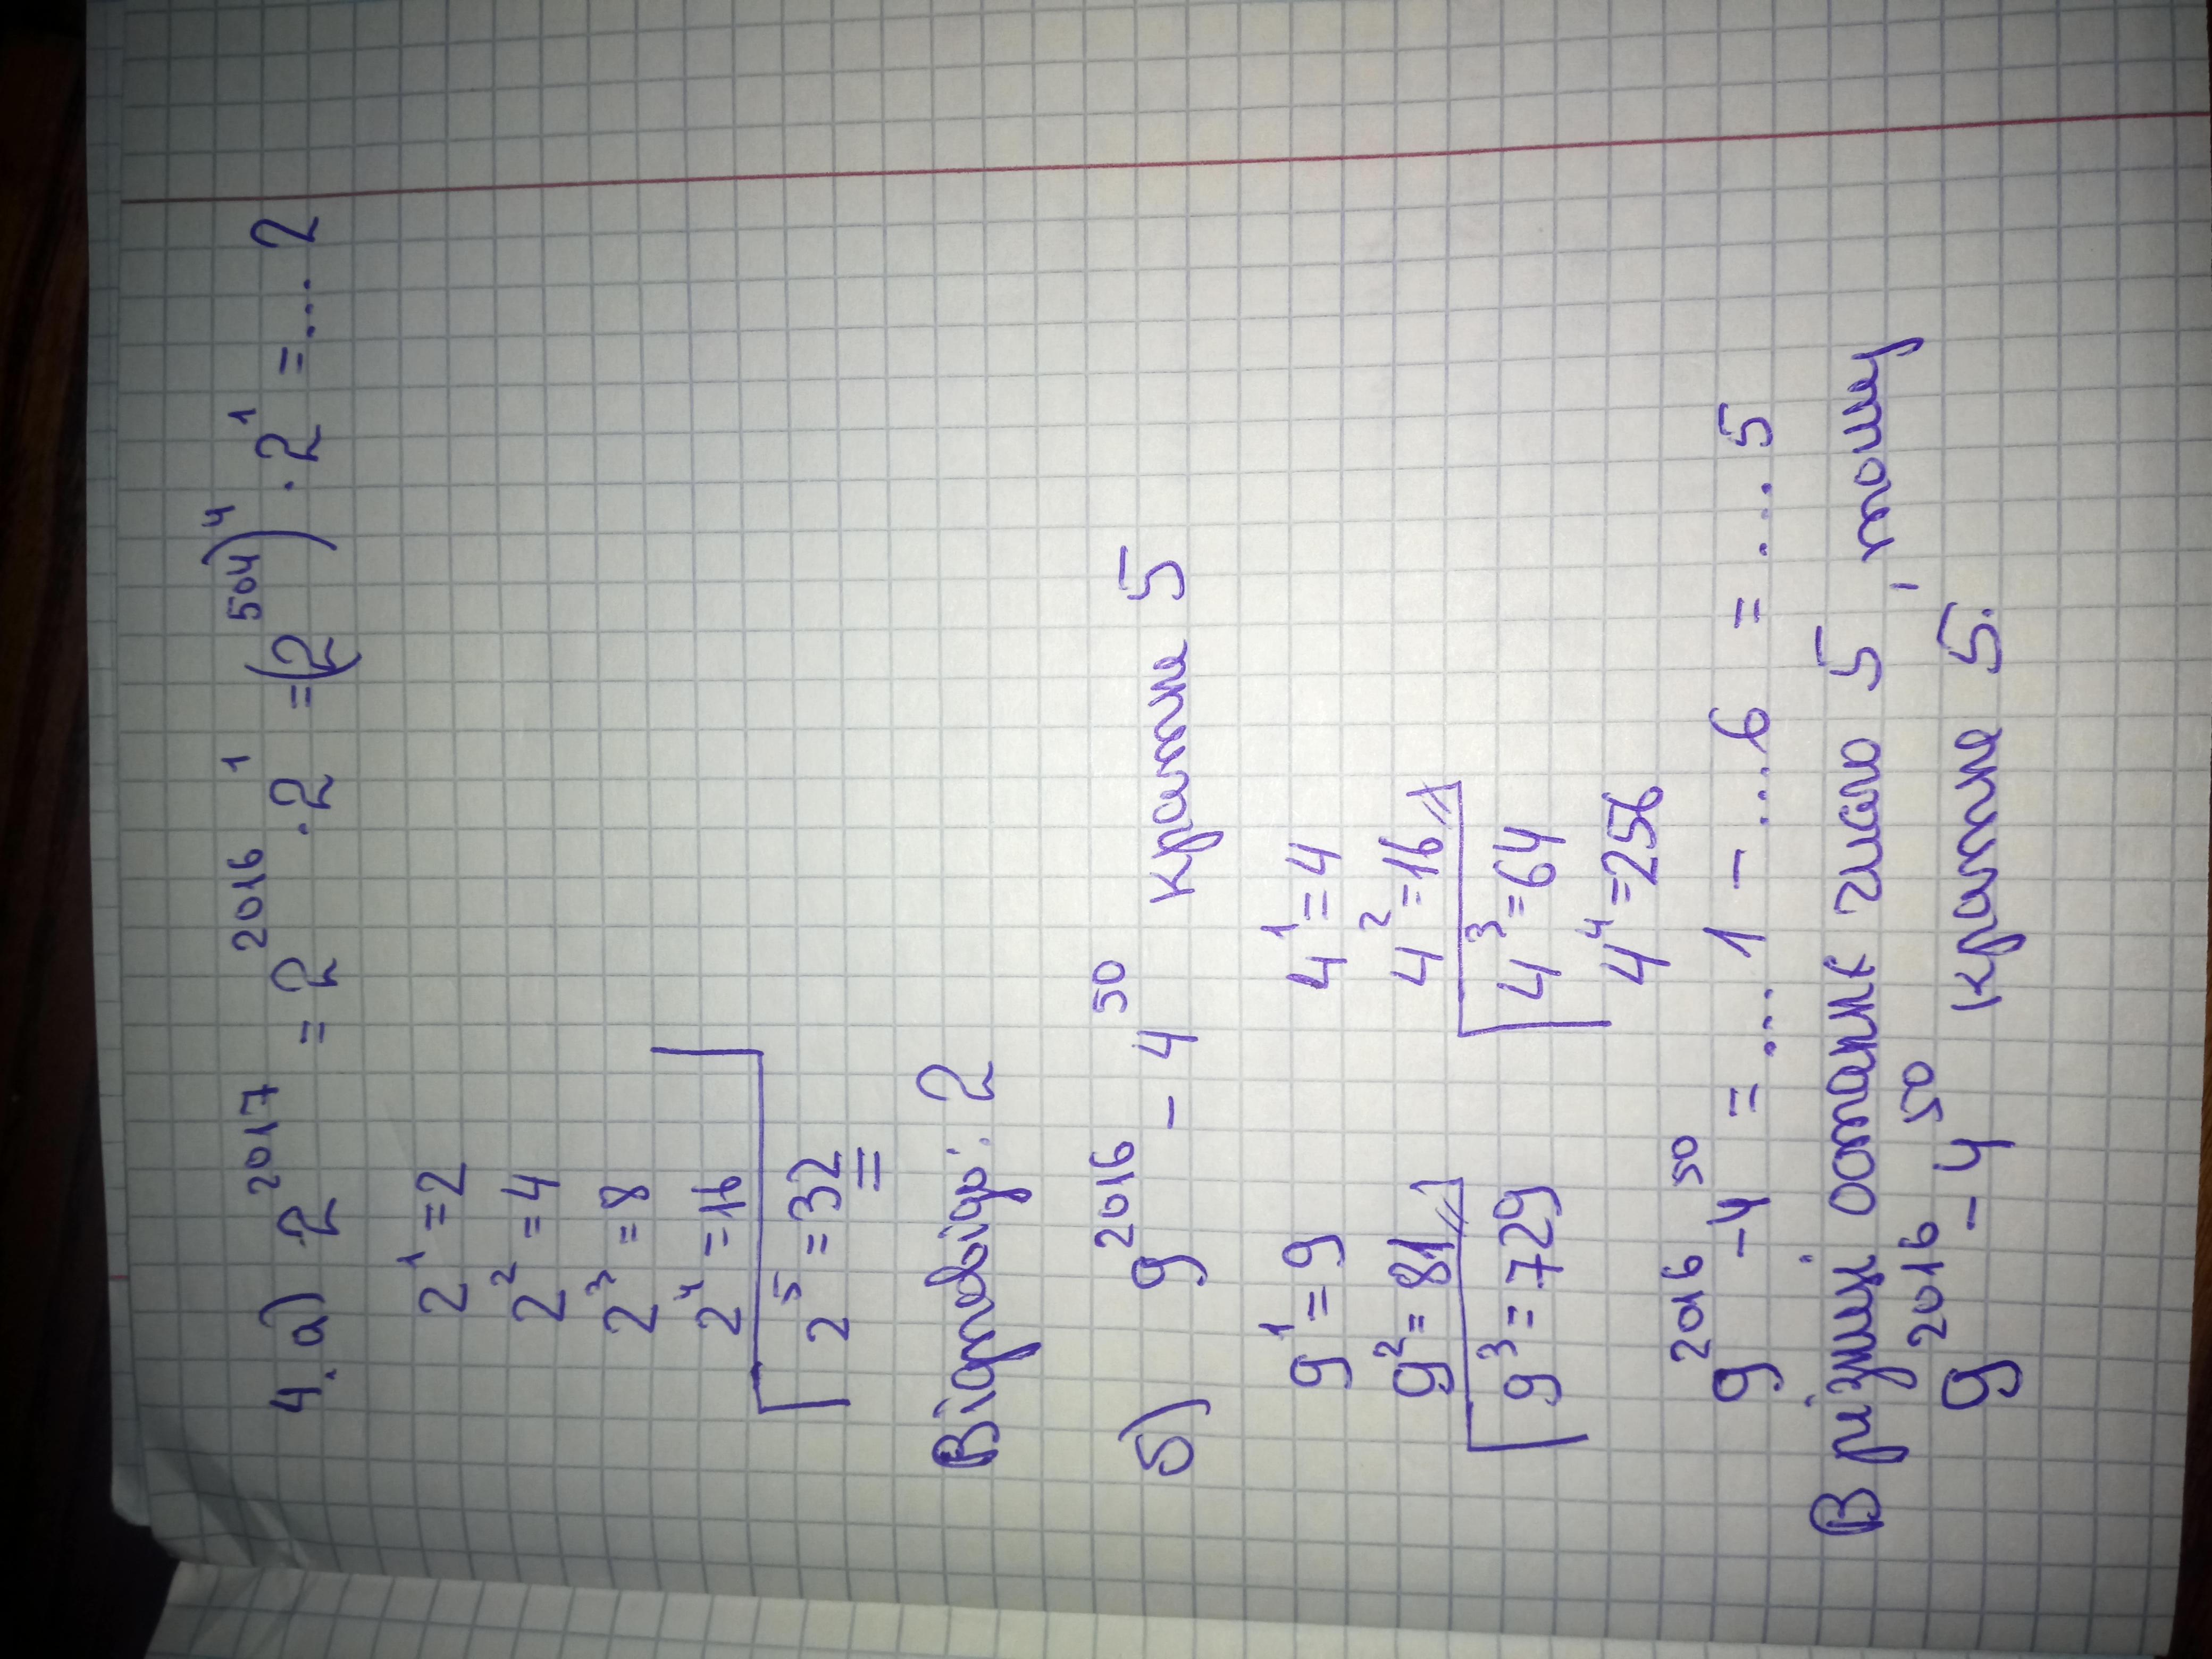 4. а) 2^2017 = 2^2016 · 2^1 = (2^504)^4 · 2^1 = ... 2
2^1 = 2
2^2 = 4
2^3 = 8
2^4 = 16
2^5 = 32
Відповідь: 2
б) 9^2016 - 4^50 кратне 5
9^1 = 9 4^1 = 4
9^2 = 81 4^2 = 16
9^3 = 729 4^3 = 64
4^4 = 256
9^2016 - 4^50 = ... 1 - ... 6 = ... 5
В різниці отримано число 5, тому
9^2016 - 4^50 кратне 5.